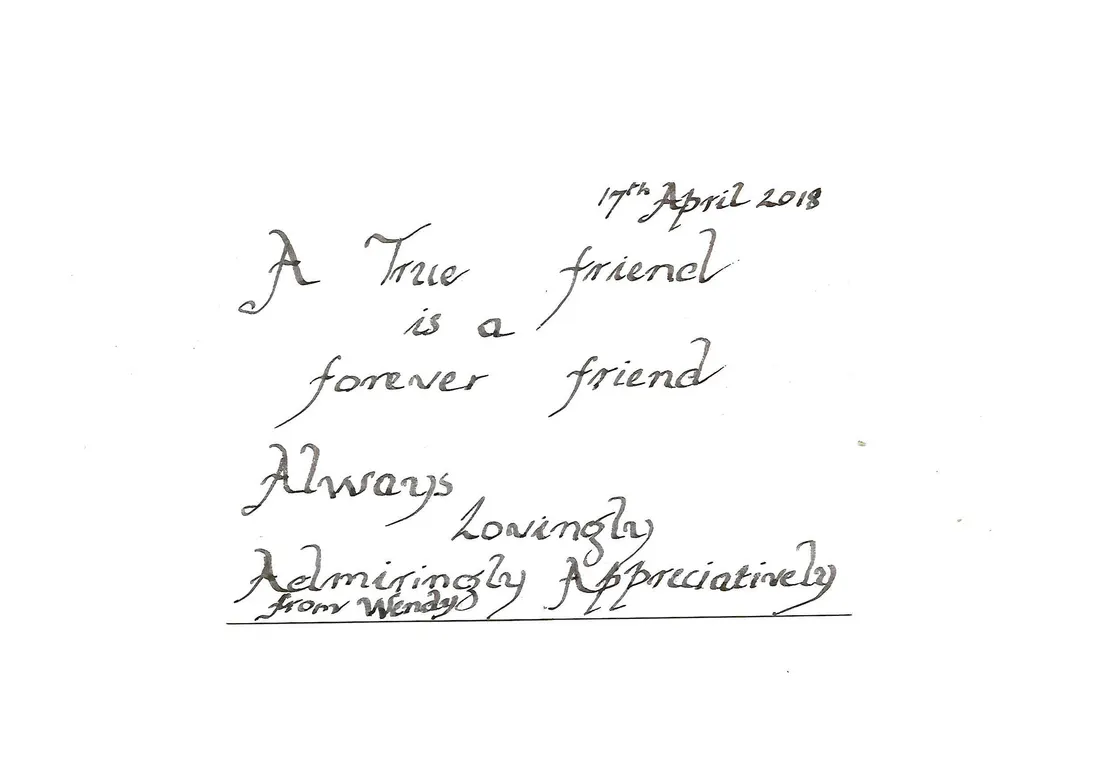 17th April 2018
A True friend
is a
forever friend
Always
Lovingly
Admiringly Appreciatively
from Wendy